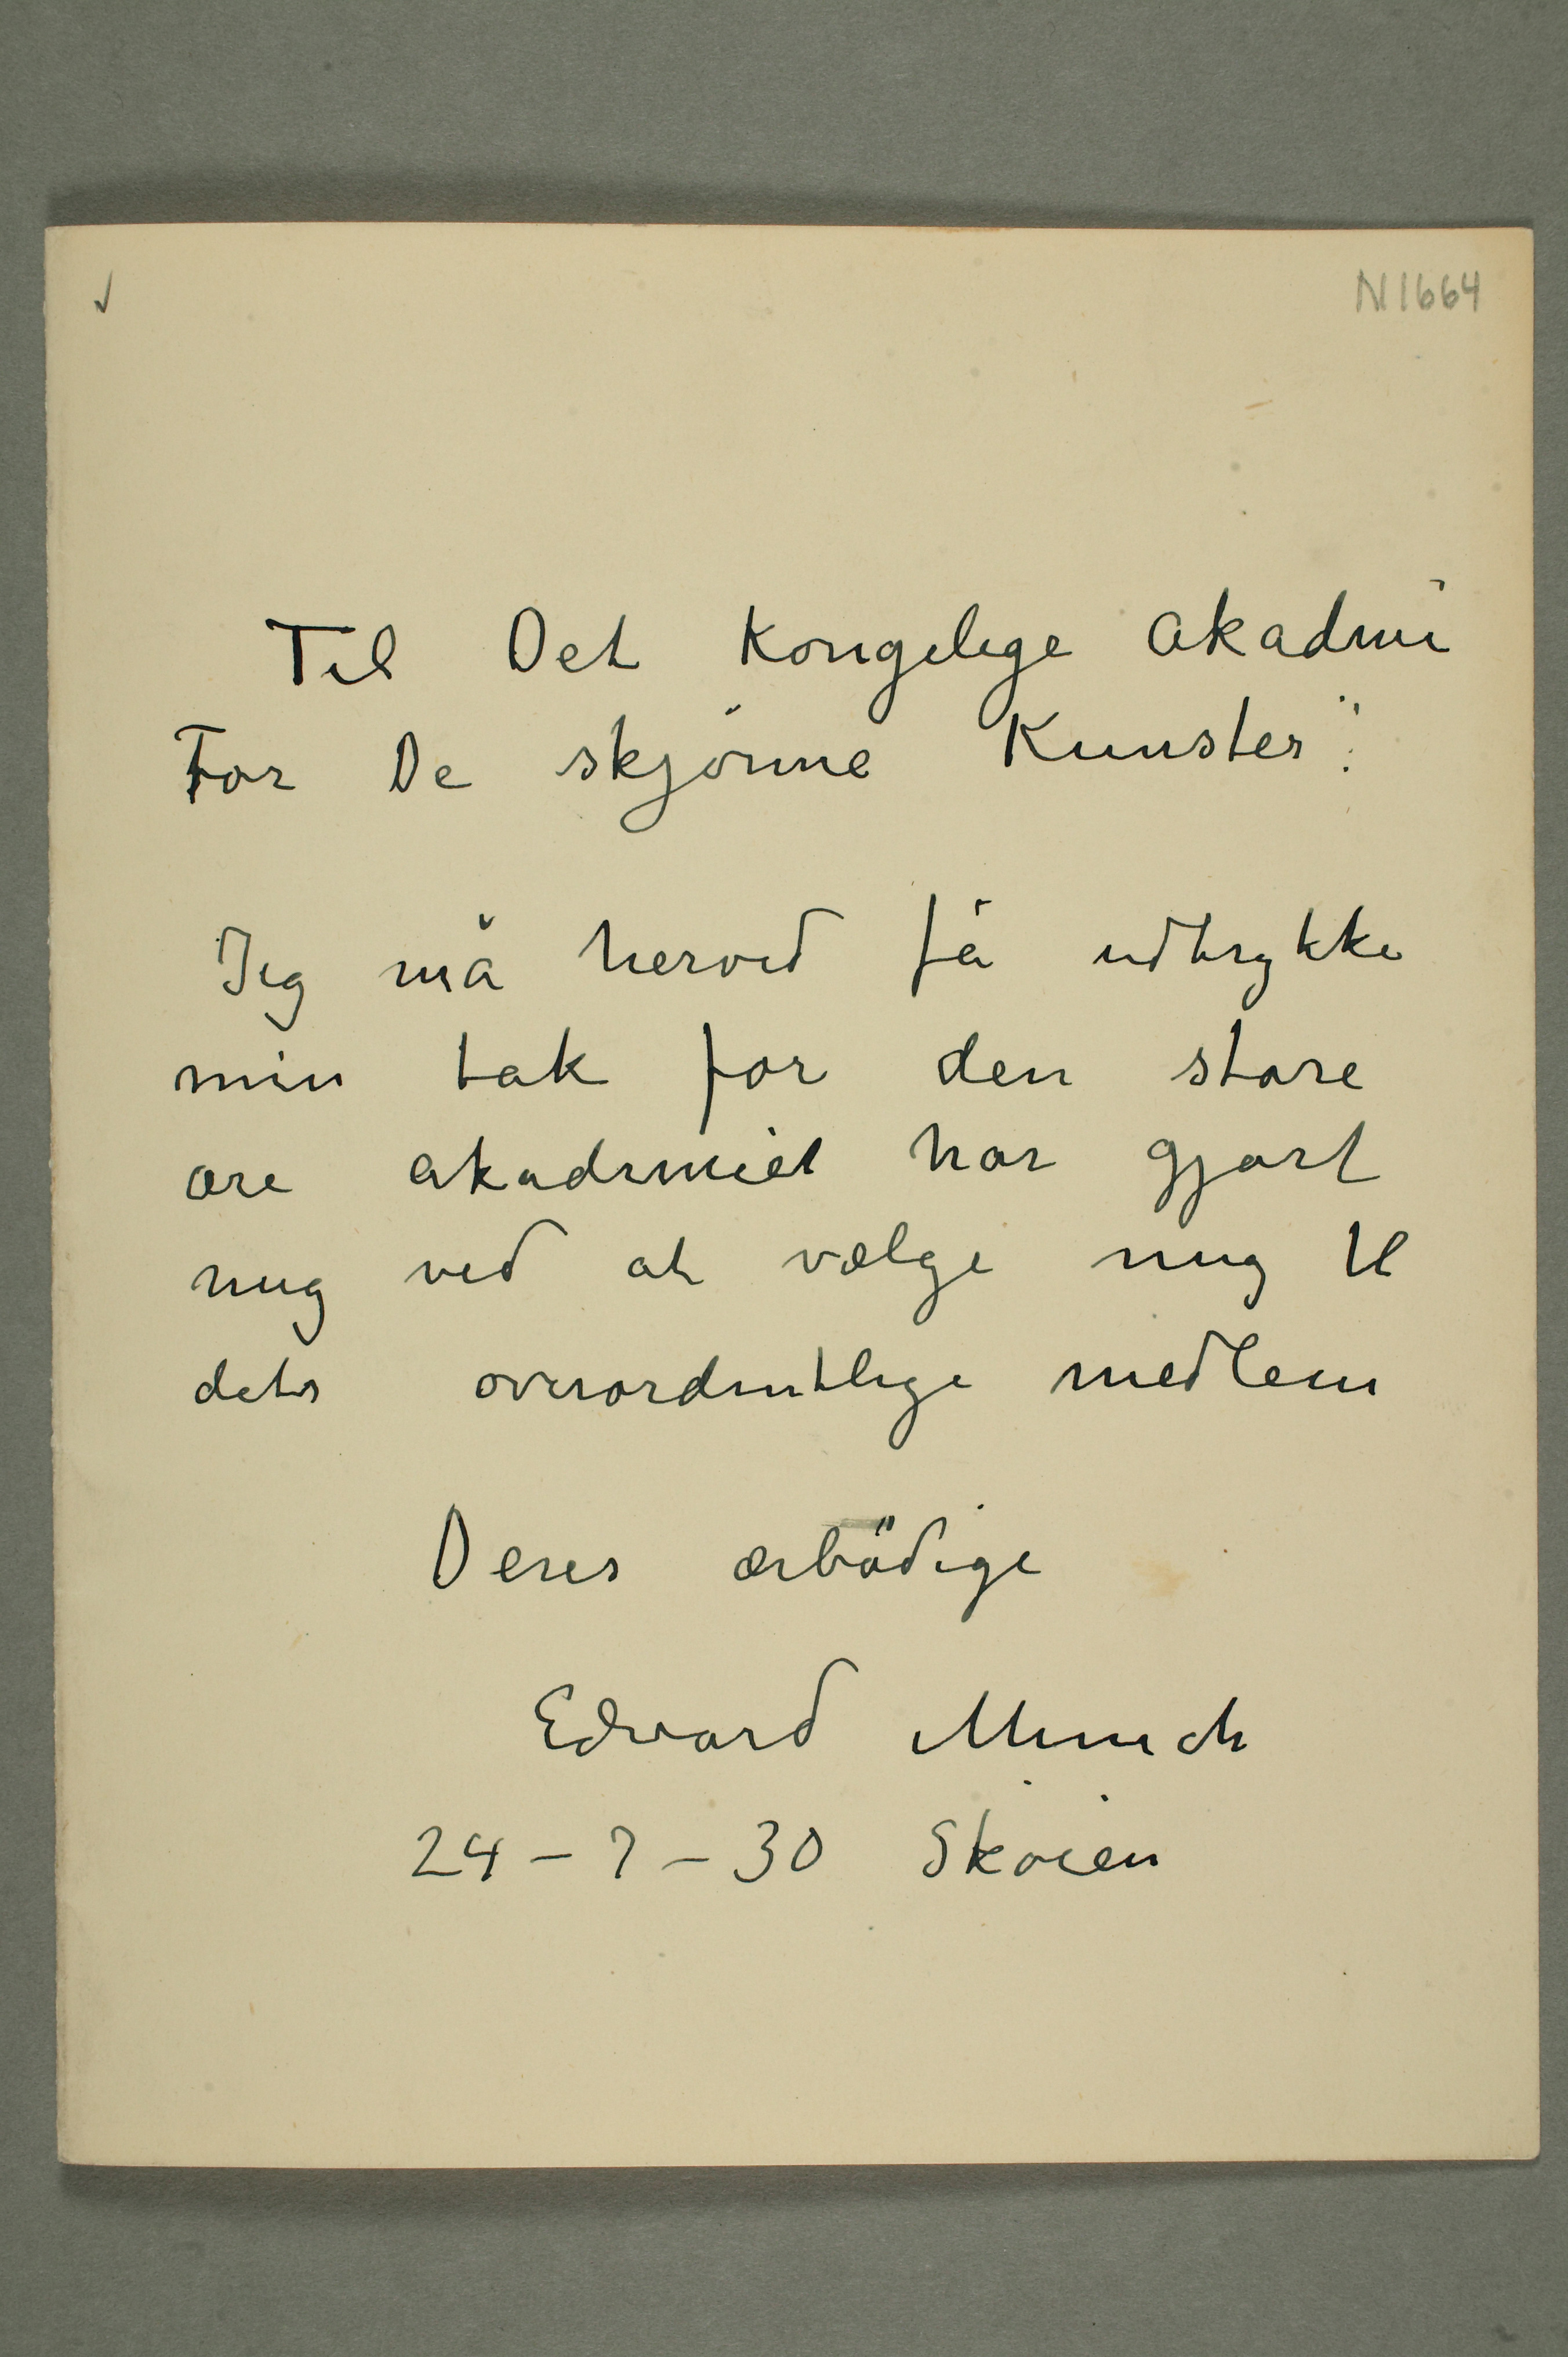 N1664
Til Det Kongelige Akademi
For De skjönne Kunster":
Jeg må herved få udtrykke
min tak for den store
ære Akademiet har gjort
mig ved at vælge mig til
dets overordentlige medlem
Deres ærbödige
Edvard Munch
24 – 7 – 30 Skøien